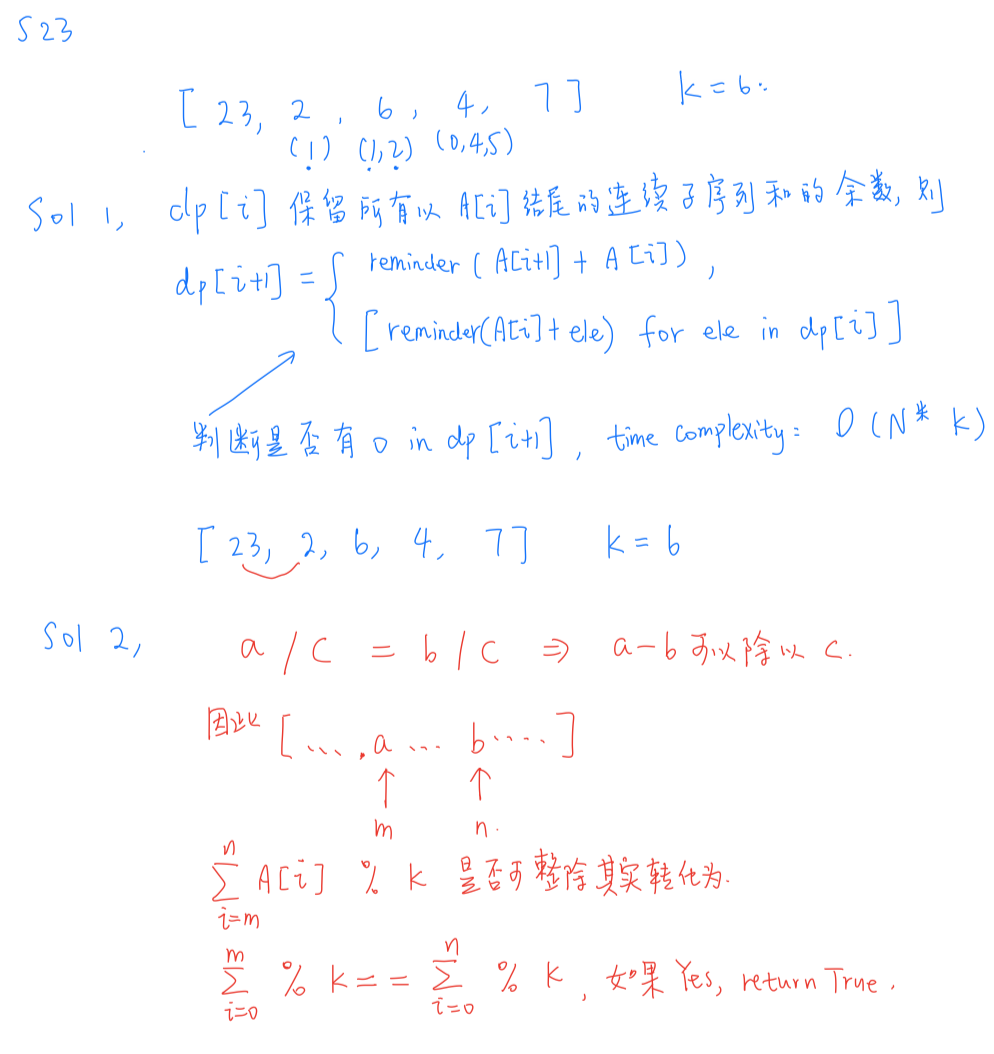 523
[ 23, 2 , 6 , 4, 7 ] k = 6:
(1) (1,2) (0,4,5)
Sol 1, dp[i] 保留所有以 A[i] 结尾的连续子序列和的余数, 则
dp[i+1] = { reminder ( A[i+1] + A[i] ) ,
[ reminder(A[i]+ele) for ele in dp[i] ]
判断是否有 0 in dp[i+1] , time complexity: O (N * k)
[ 23, 2, 6, 4, 7 ] k = 6
Sol 2, a / c = b / c ⇒ a-b 可以除以 c.
因此 [ .... , a ... b ..... ]
↑ ↑
m n.
n
∑ A[i] % k 是否可整除其实转化为.
i=m
m n
∑ % k == ∑ % k , 如果 Yes, return True .
i=0 i=0